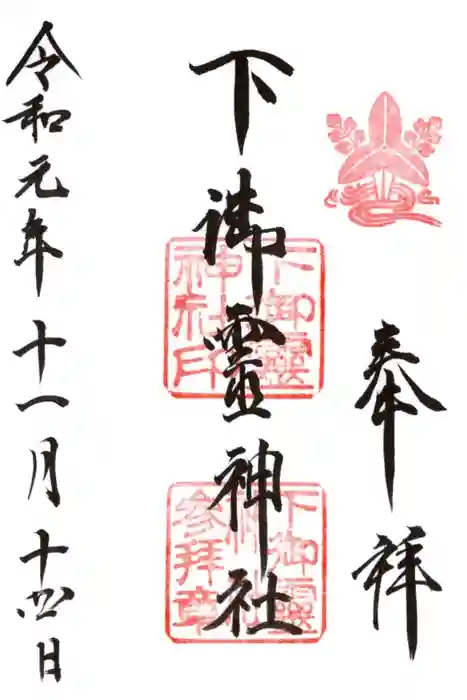 奉拝
下御靈神社
下御靈
神社印
下御靈
神社
参拝章
令和元年十一月十四日